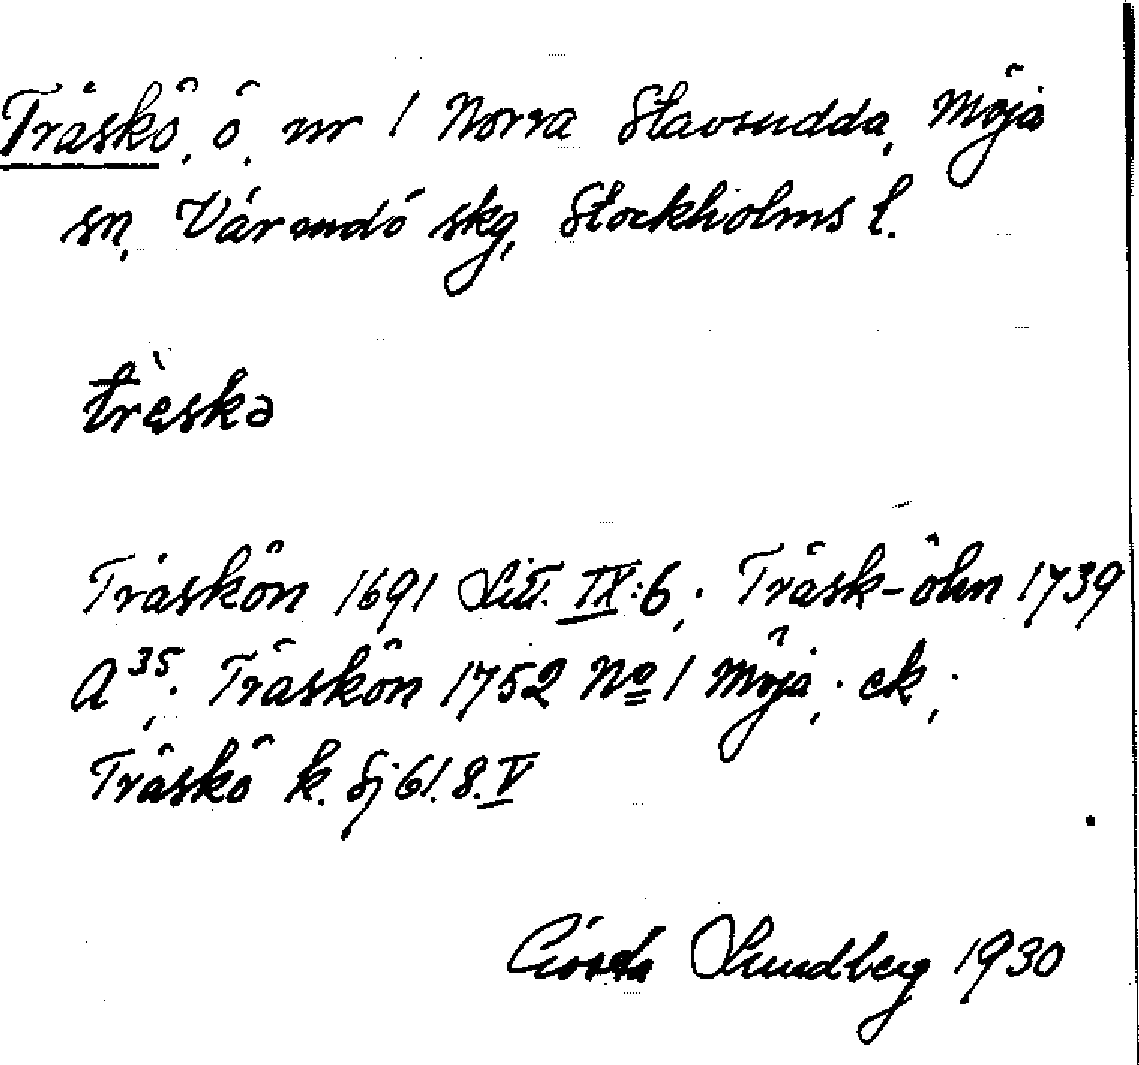 Träskö, ö, nr 1 Norra Stavsudda, Möja
sn, Värmdö skg, Stockholms l.
trɛ̀skə
Träskön 1691 Litt. IX:6; Träsk-öhn 1739
A 35; Träskön 1752 No 1 Möja; ek;
Träskö k. Sj 61. 8. V
Sundberg 1930